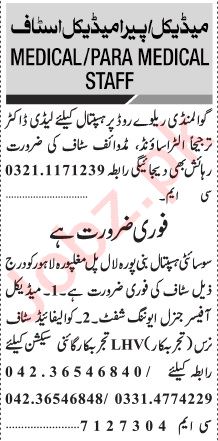 میڈیکل/پیرامیڈیکل اسٹاف
MEDICAL/PARA MEDICAL
STAFF
گوالمنڈی ریلوے روڈ پر ہسپتال کیلئے لیڈی ڈاکٹر
ترجیحا الٹراساؤنڈ، مڈوائف سٹاف کی ضرورت
رہائش بھی دیجائیگی رابطہ 0321.1171239
سی ایم۔
فوری ضرورت ہے
سوسائٹی ہسپتال نبی پورہ لال پل مغلپورہ لاہور کو درج
ذیل سٹاف کی فوری ضرورت ہے۔1۔ میڈیکل
آفیسر جنرل ایوننگ شفٹ۔2۔ کوالیفائیڈ سٹاف
نرس (تجربہ کار) LHV تجربہ کار گائنی سیکشن کیلئے
رابطہ کیلئے 042.36546840/
042.36546848/ 0331.4774229
سی ایم۔ 7127304